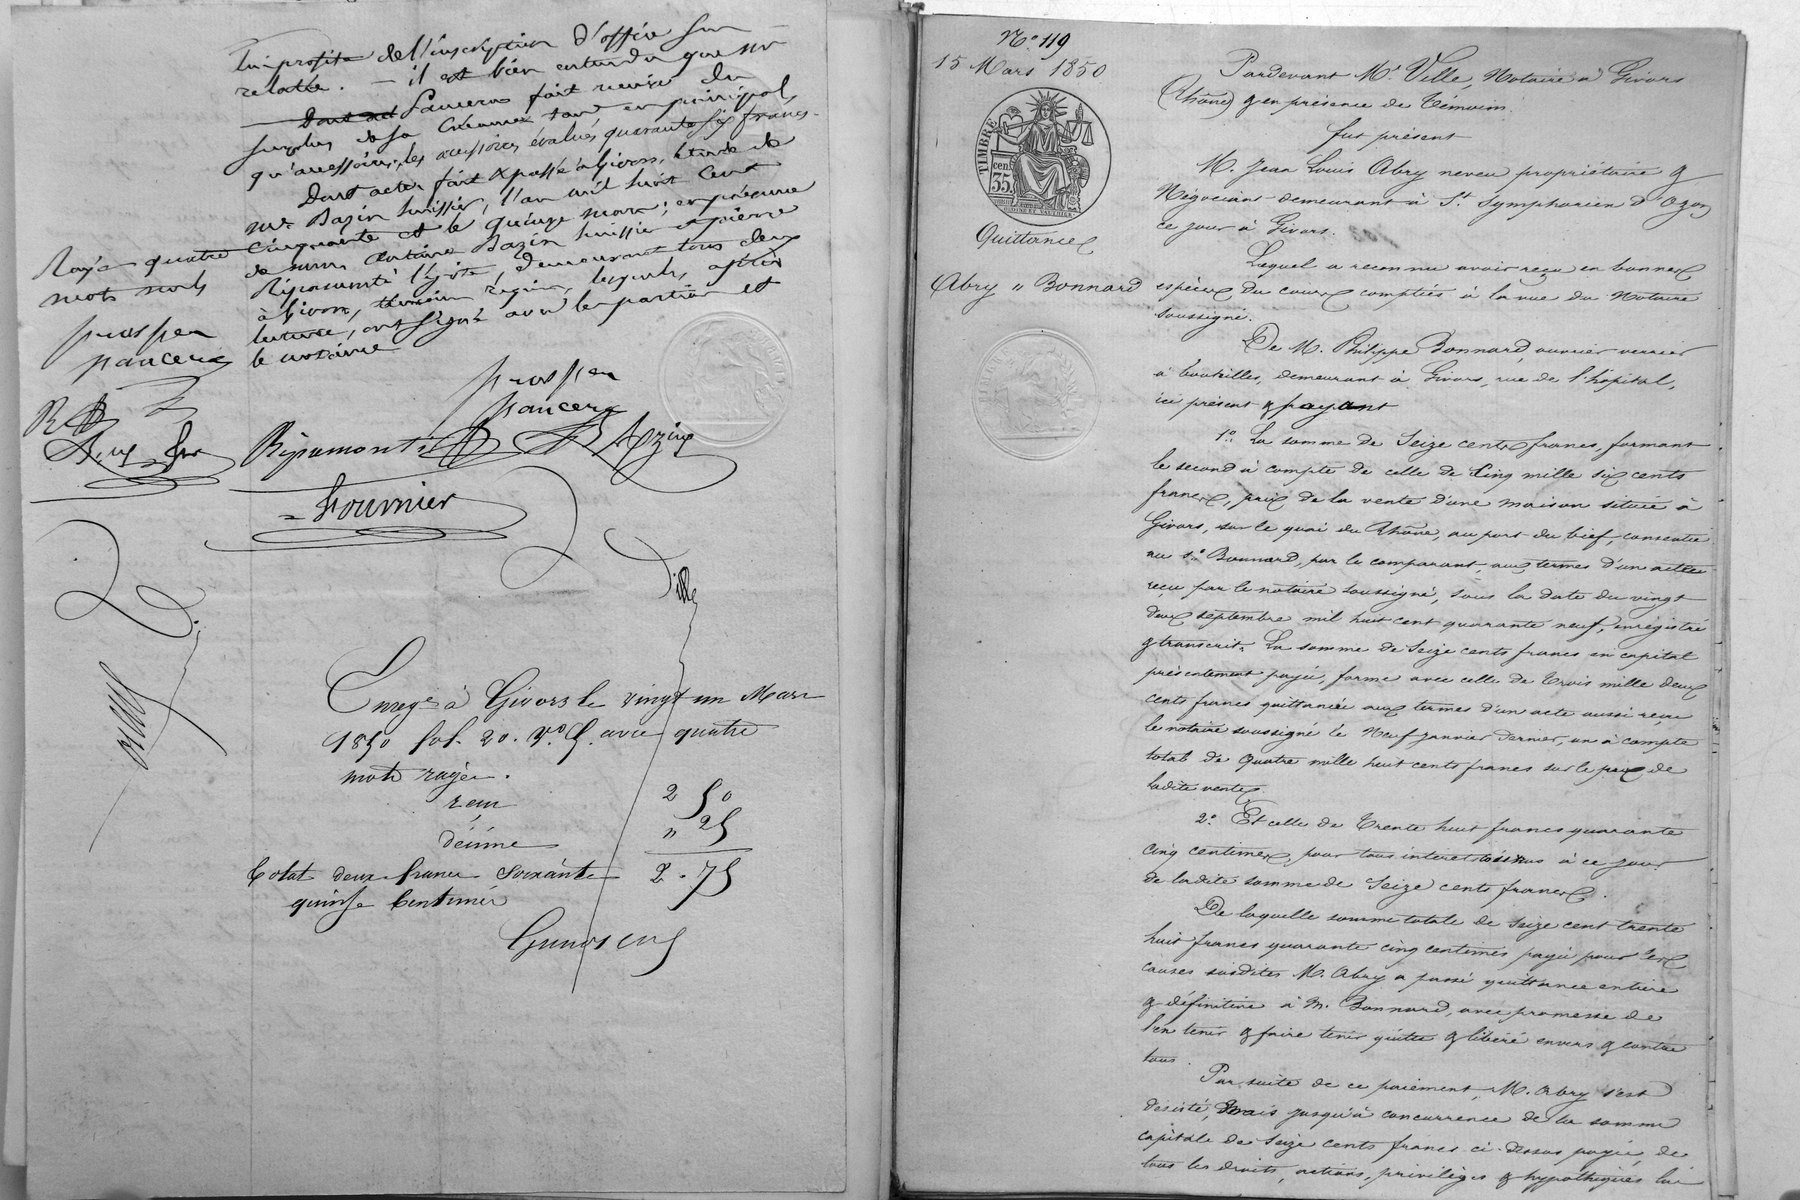 lui profite de l'inscription d'office sus
relatée. — il est bien entendu que mr
Pancera fait remise du
surplus de sa créance tant en principal
qu'accessoires, les accessoires évalués quarante six francs.
Dont acte, fait & passé à Givors, étude de
mr Bazin huissier, l'an mil huit cent
cinquante et le quinze mars; en présence
de mrs Antoine Bazin huissier et pierre
Ripamonti, demeurant tous deux
à Givors, témoins requis, lesquels, après
lecture, ont signé avec les parties et
le notaire
Rayé quatre
mots nuls
prosper
pancera
RB
prosper
pancera
Ripamonti
Bazin
Fournier
Ville
Enregé à Givors le vingt un Mars
1850 fol. 20. Vo C. avec quatre
mots rayés.
reçu 2 50
décime " 25
Total deux francs soixante 2.75
quinze centimes
No 119
15 Mars 1850
TIMBRE
35 cen
Quittance
Abry " Bonnard
Pardevant Me Ville, Notaire à Givors
(Rhône) & en présence de témoins.
fut présent
M. Jean Louis Abry neveu propriétaire &
Négociant demeurant à St Symphorien d'Ozon
ce jour à Givors.
Lequel a reconnu avoir reçu en bonnes
espèces du cours comptées à la vue du Notaire
soussigné.
De M. Philippe Bonnard, ouvrier verrier
à bouteilles, demeurant à Givors, rue de l'hôpital,
ici présent & payant
1o La somme de Seize cents francs, formant
le second à compte de celle de Cinq mille six cents
francs, prix de la vente d'une maison située à
Givors, sur le quai du Rhône, au port du bief, consentie
au sr Bonnard, par le comparant, aux termes d'un acte
reçu par le notaire soussigné, sous la date du vingt
deux septembre mil huit cent quarante neuf, enrégistré
& transcrit. La somme de Seize cents francs en capital
présentement payée, forme avec celle de trois mille deux
cents francs quittancée aux termes d'un acte aussi reçu
le notaire soussigné le Neuf janvier dernier, un à compte
total de quatre mille huit cents francs sur le prix de
ladite vente.
2o Et celle de Trente huit francs quarante
cinq centimes pour tous intérêts à ce jour
de ladite somme de Seize cents francs.
De laquelle somme totale de Seize cent trente
huit francs quarante cinq centimes payée pour les
causes susdites M. Abry a passé quittance entière
& définitive à M. Bonnard, avec promesse de
l'en tenir & faire tenir quitte & libéré envers & contre
tous.
Par suite de ce paiement, M. Abry s'est
désisté, mais jusqu'à concurrence de la somme
capitale de Seize cents francs ci-dessus payée, de
tous les droits, actions, privilèges & hypothèques lui